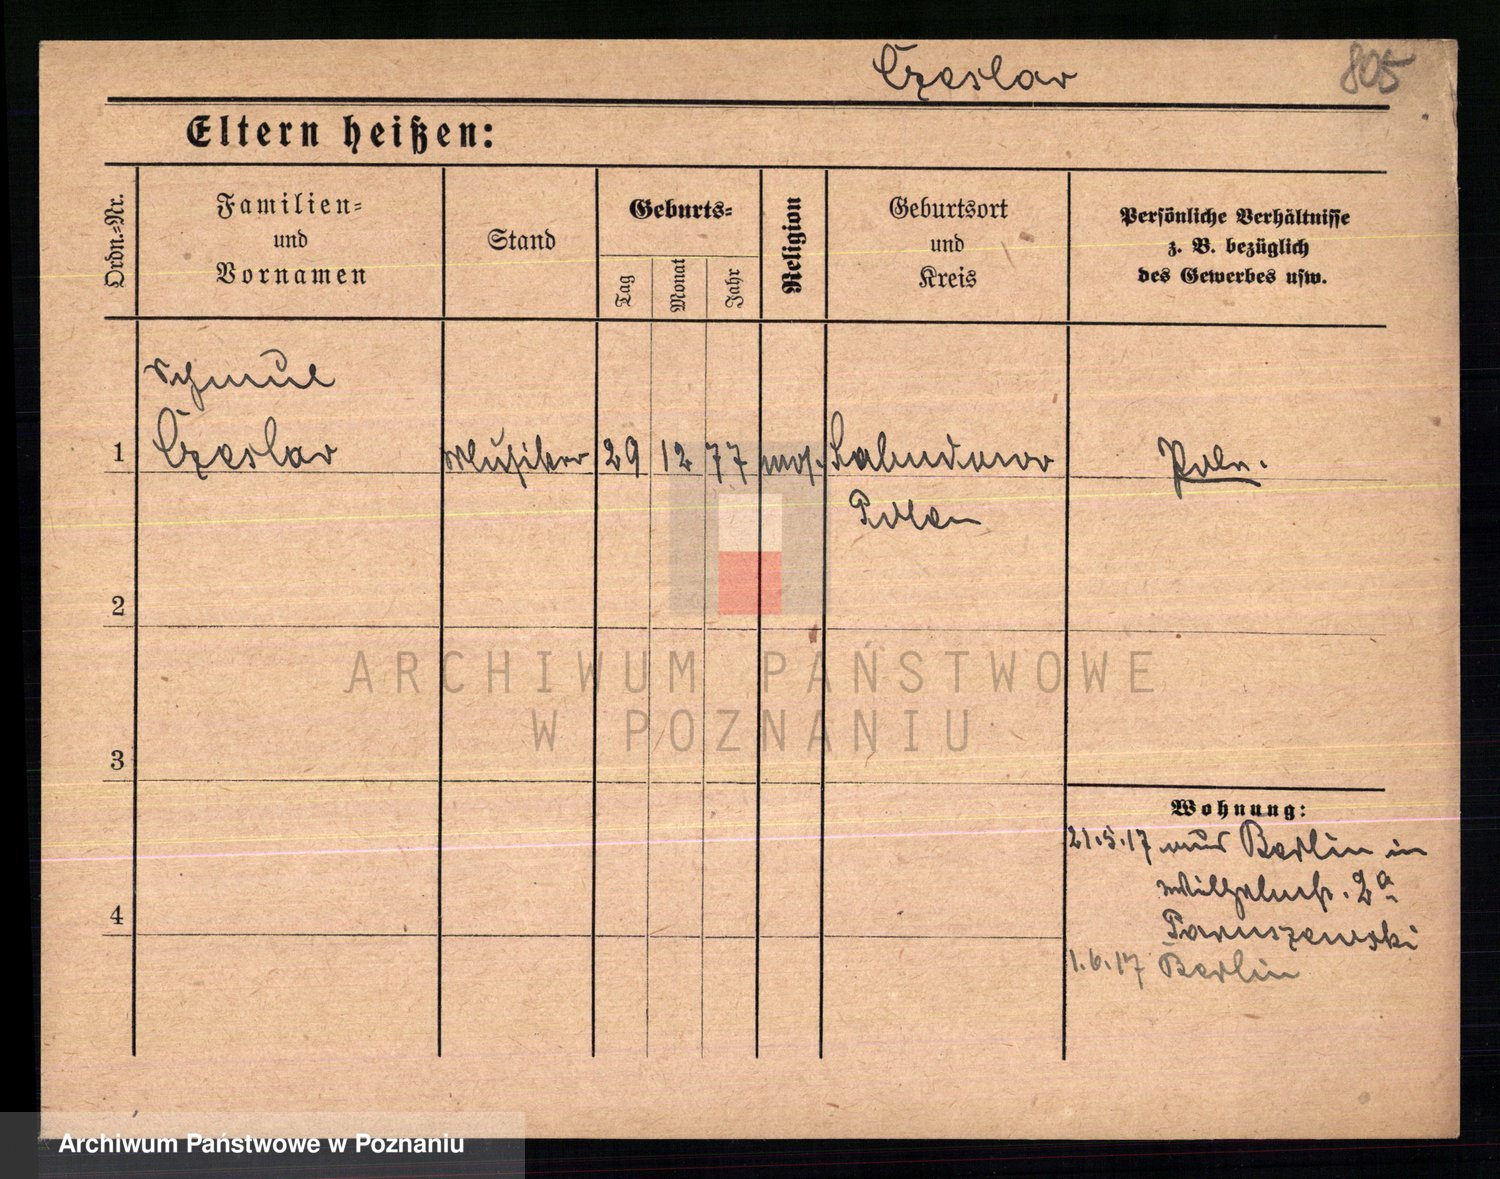 Czeslav
805
Eltern heißen:
Ordn.-Nr.
Familien-
und
Vornamen
Stand
Geburts-
Tag
Monat
Jahr
Religion
Geburtsort
und
Kreis
Persönliche Verhältnisse
z. B. bezüglich
des Gewerbes usw.
Schmul
1 Czeslav Musiker 29 12 77 mos. Poln.
Polen
2
ARCHIWUM PAŃSTWOWE
W POZNANIU
3
Wohnung:
21.5.17 aus Berlin in
Wilhelmstr. 2a
Paruszewski
1.6.17 Berlin
4
Archiwum Państwowe w Poznaniu